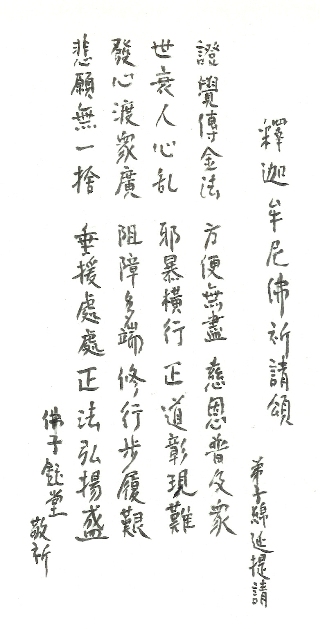 釋迦牟尼佛祈請頌
弟子綿延提請
證覺傳金法 方便無盡 慈恩普及眾
世衰人心乱 邪暴橫行 正道彰現難
發心渡眾廣 阻障多端 修行步履艱
悲願無一捨 垂援處處 正法弘揚盛
佛子鈺堂 敬祈